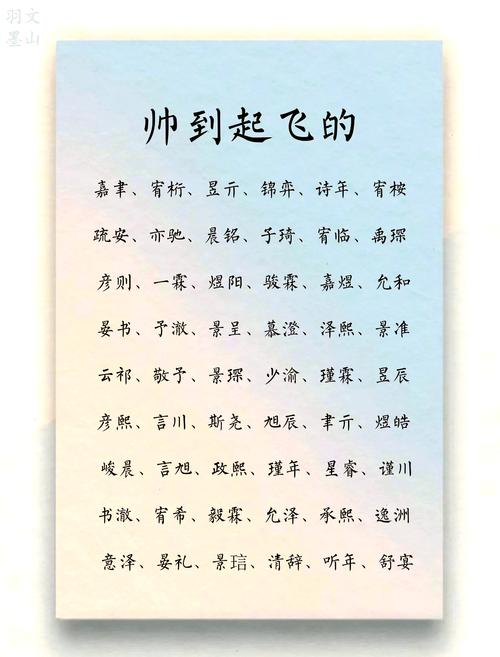 羽文
墨山
帅到起飞的
嘉聿、宥桁、昱亓、锦弈、诗年、宥桉
疏安、亦驰、晨铭、子琦、宥临、禹琛
彦则、一霖、煜阳、骏霖、嘉煜、允和
晏书、予澈、景呈、慕澄、泽熙、景准
云祁、敬予、景琛、少渝、瑾霖、昱辰
彦熙、言川、斯尧、旭辰、聿亓、煜皓
峻晨、言旭、政熙、瑾年、星睿、谨川
书澈、宥希、毅霖、允泽、承熙、逸洲
意泽、晏礼、景琂、清辞、听年、舒宴